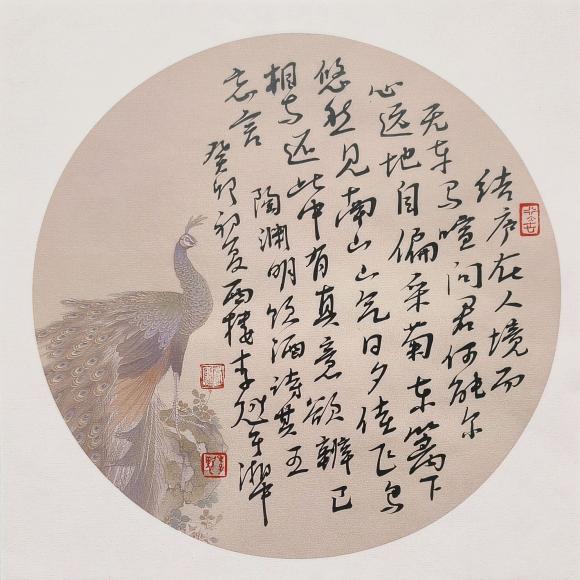 结庐在人境而
无车马喧问君何能尔
心远地自偏采菊东篱下
悠然见南山山气日夕佳飞鸟
相与还此中有真意欲辨已
忘言
陶渊明饮酒诗其五
癸卯初夏雨楼李